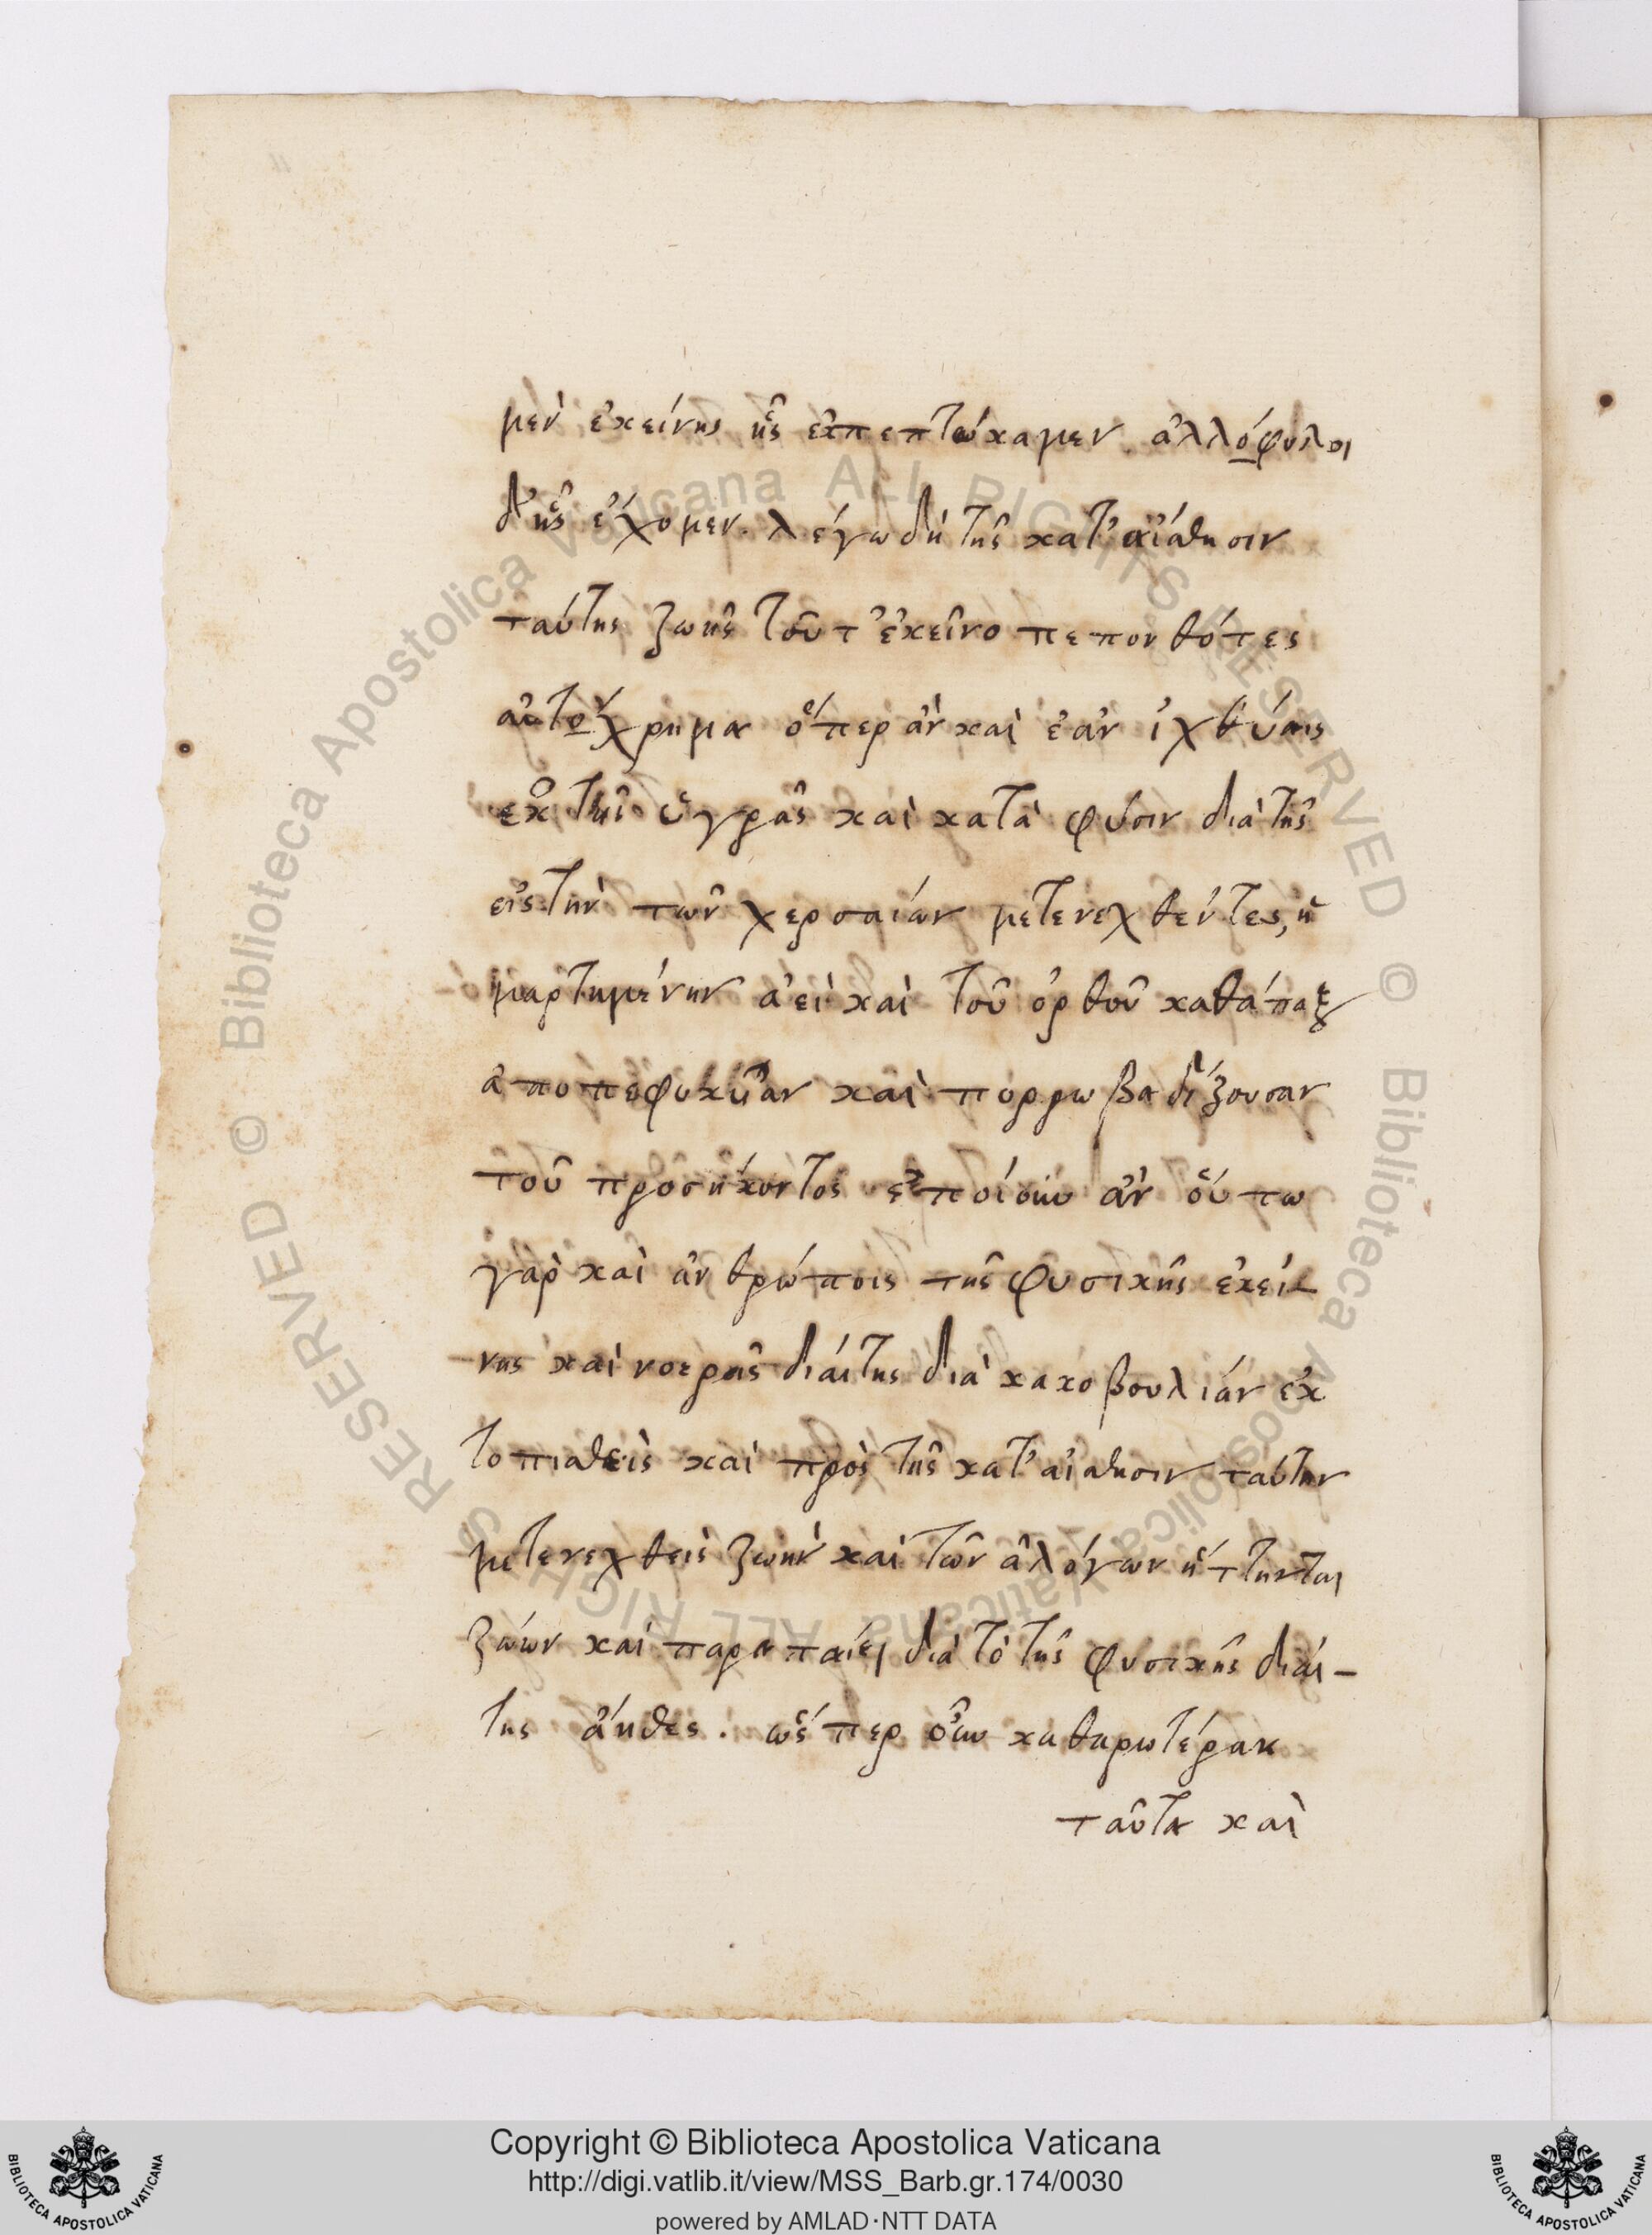 μὲν ἐκείνης ἧς ἐκπεπτώκαμεν. ἀλλόφυλοι
δ' ἧς ἔχομεν. λέγω δὴ τῆς κατ' αἴσθησιν
ταύτης ζωῆς τοῦτ' ἐκεῖνο πεπονθότες
αὐτόχρημα ὅπερ ἂν καὶ ἐὰν ἰχθύαις
ἐκ τῆς ὑγρᾶς καὶ κατὰ φύσιν διὰ τῆς
εἰς τὴν τῶν χερσαίων μετενεχθέντες, ἡ
μαρτημένην ἀεὶ καὶ τοῦ ὀρθοῦ καθάπαξ
ἀποπεφυκῦιαν καὶ πόρρω βαδίζουσαν
τοῦ προσήκοντος ἂν οὕτω
γὰρ καὶ ἀνθρώποις τῆς φυσικῆς ἐκεί-
νης καὶ νοερᾶς διάιτης διὰ κακοβουλίαν ἐκ
τοπισθεὶς καὶ πρὸς τῆς κατ' αἴσθησιν ταύτην
μετενεχθεὶς ζωὴν καὶ τῶν ἀλόγων ἥττηται
ζώων καὶ παραπαίει διὰ τὸ τῆς φυσικῆς διάι-
της ἄηθες. ὥσπερ οὖν καθαρωτέραν
ταῦτα καὶ
Copyright © Biblioteca Apostolica Vaticana
http://digi.vatlib.it/view/MSS_Barb.gr.174/0030
powered by AMLAD·NTT DATA
BIBLIOTECA APOSTOLICA VATICANA
BIBLIOTECA APOSTOLICA VATICANA
© Biblioteca Apostolica Vaticana ALL RIGHTS RESERVED
© Biblioteca Apostolica Vaticana ALL RIGHTS RESERVED